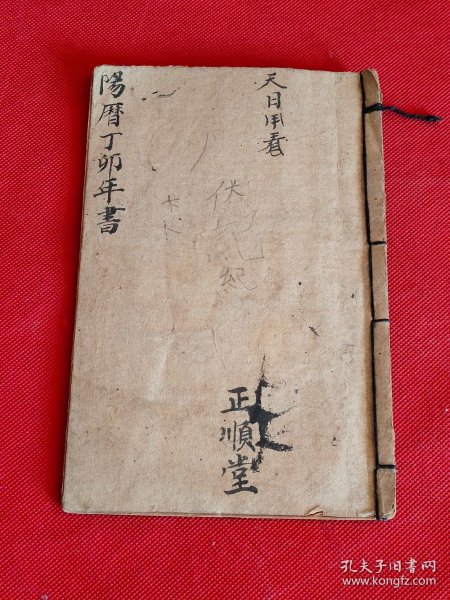 天日用看
陽曆丁卯年書
正順堂
孔夫子旧书网
www.kongfz.com